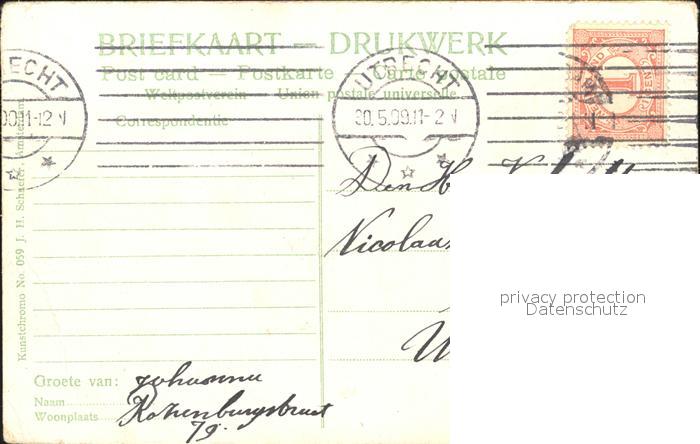 BRIEFKAART — DRUKWERK
Post card — Postkarte — Carte postale
Weltpostverein — Union postale universelle
Correspondentie
UTRECHT
30.5.09.11-2 N
RECHT
09.11-12 N
Den H
Nicolaas
privacy protection
Datenschutz
Kunstchromo No. 059 J. H. Schaefer, Amsterdam
Groete van: Johanna
Naam
Woonplaats
79.